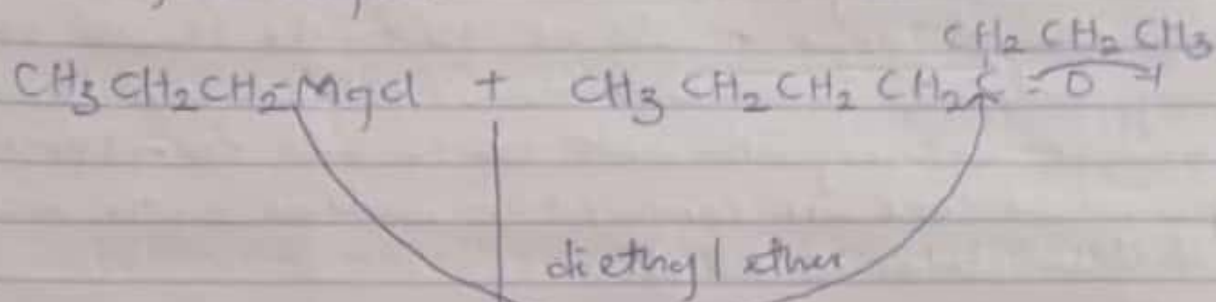 CH2 CH2 CH3
CH3 CH2 CH2-MgCl + CH3 CH2 CH2 CH2 C = O
diethyl ether